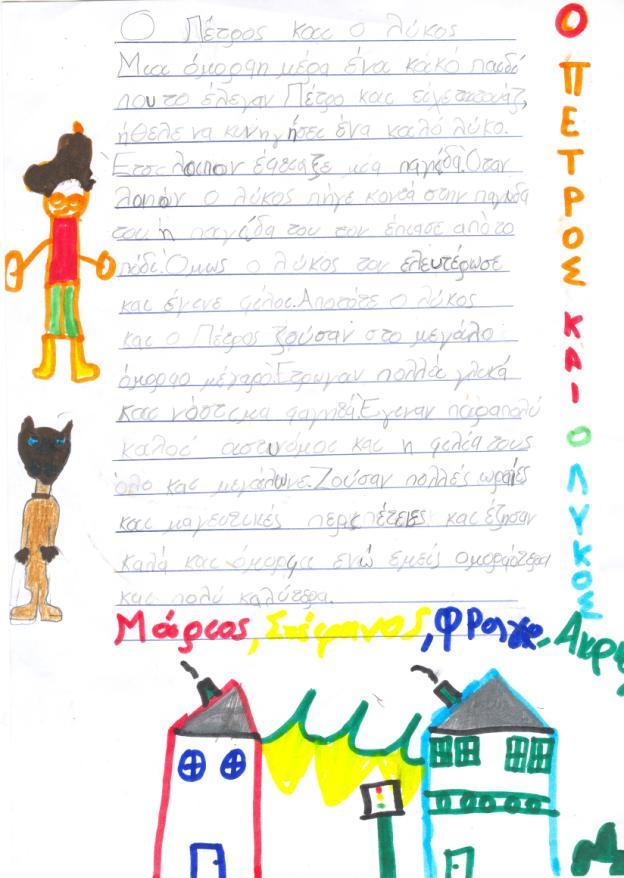 Ο Πέτρος και ο λύκος
Μια όμορφη μέρα ένα κακό παιδί
που το έλεγαν Πέτρο και είχε τατουάζ,
ήθελε να κυνηγήσει ένα καλό λύκο.
Έτσι λοιπόν έφτιαξε μια παγίδα. Όταν
λοιπόν ο λύκος πήγε κοντά στην παγίδα
του η παγίδα του τον έπιασε από το
πόδι. Όμως ο λύκος τον ελευτέρωσε
και έγινε φίλος. Από τότε ο λύκος
και ο Πέτρος ζούσαν στο μεγάλο
όμορφο μέγαρο. Έτρωγαν πολλά γλικά
και νόστιμα φαγητά. Έγιναν πάρα πολύ
καλοί αστυνόμοι και η φιλία τους
όλο και μεγάλωνε. Ζούσαν πολλές ωραίες
και μαγευτικές περιπέτειες και έζησαν
καλά και όμορφα ενώ εμείς ομορφότερα
και πολύ καλύτερα.
Μάριος, Στέφανος,
Ο ΠΕΤΡΟΣ ΚΑΙ Ο ΛΥΚΟΣ